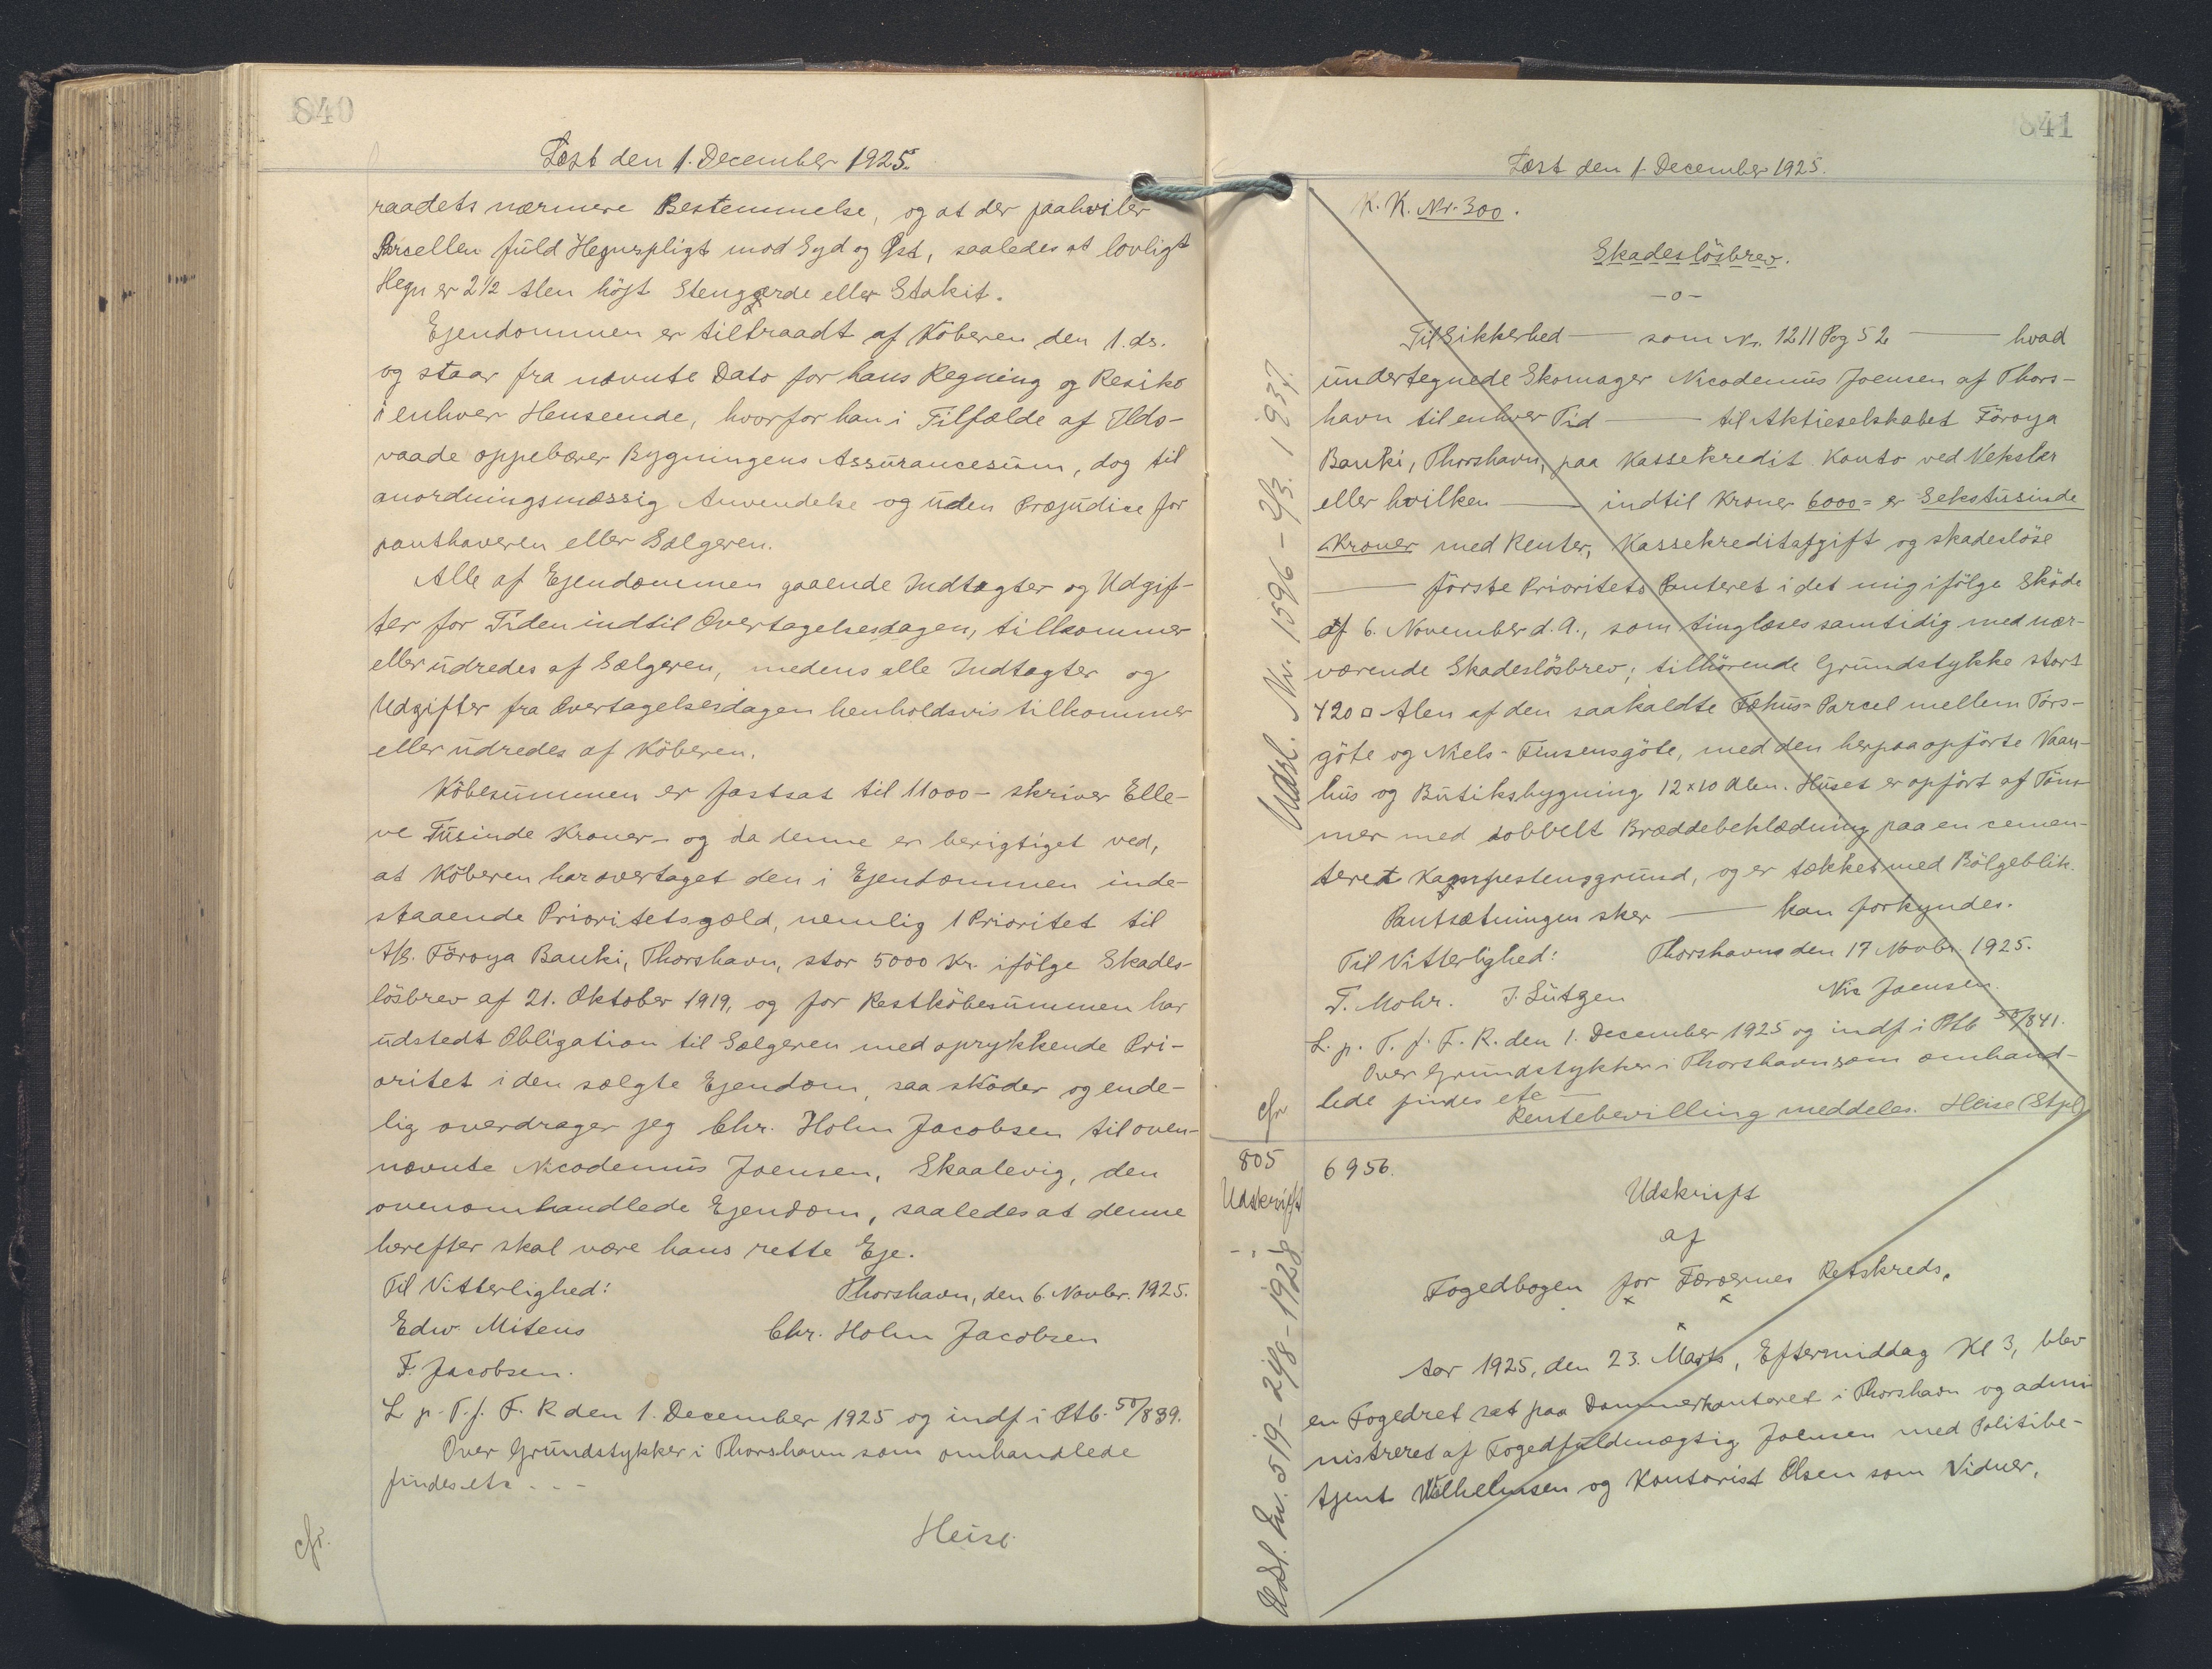 840
Læst den 1. December 1925.
raadets nærmere Bestemmelse, og at der paahviler
Parcellen fuld Hegnspligt mod Syd og Øst, saaledes at lovligt
Hegn er 2 1/2 Alen höjt Stenggærde eller Stakit.
Ejendommen er tiltraadt af Köberen den 1. ds.
og staar fra nævnte Dato for hans Regning og Resiko
i enhver Henseende, hvorfor han i Tilfælde af Ildo-
vaade oppebærer Bygningens Assurancesum, dog til
anordningsmæssig Anvendelse og uden Præjudice for
panthaveren eller Sælgeren.
Alle af Ejendommen gaaende Indtægter og Udgif-
ter for Tiden indtil Overtagelsesdagen, tilkommer
eller udredes af Sælgeren, medens alle Indtægter og
Udgifter fra Overtagelsesdagen henholdsvis tilkommer
eller udredes af Köberen.
Köbesummen er fastsat til 11000 - skriver Elle-
ve Tusinde Kroner - og da denne er berigtiget ved,
at Köberen har overtaget den i Ejendommen inde-
staaende Prioritetsgæld, nemlig 1 Prioritet til
A/S. Föroya Banki, Thorshavn, stor 5000 Kr. ifölge Skades-
lösbrev af 21. Oktober 1919, og for Restköbesummen har
udstedt Obligation til Sælgeren med oprykkende Pri-
oritet i den solgte Ejendom, saa sköder og ende-
lig overdrager jeg Chr. Holm Jacobsen til oven-
nævnte Nicodemus Joensen, Skaalevig, den
ovenomhandlede Ejendom, saaledes at denne
herefter skal være hans rette Eje.
Til Vitterlighed: Thorshavn, den 6. Novbr. 1925.
Edw. Mitens Chr. Holm Jacobsen
F. Jacobsen.
L. p. T. f. F. R den 1. December 1925 og indf i Ptb. 50/839.
Over Grundstykker i Thorshavn som omhandlede
findes etc . - -
cfr. Heise
841
Læst den 1 December 1925.
K. K. Nr. 300.
Skadeslösbrev.
- o -
Til Sikkerhed — som Nr. 1211 Pag 52 — hvad
undertegnede Skomager Nicodemus Joensen af Thors-
havn til enhver Tid — til Aktieselskabet Föroya
Banki, Thorshavn, paa Kassekredit Konto ved Veksler
eller hvilken — indtil Kroner 6000 = er Sekstusinde
Kroner med Renter, Kassekreditafgift og skadeslöse
— förste Prioritets Panteret i det mig ifölge Sköde
af 6. November d. A., som tinglæses samtidig med nær-
værende Skadeslösbrev; tilhörende Grundstykke stort
420 □ Alen af den saakaldte Fæhus- Parcel mellem Törs-
göte og Niels- Finsensgöte, med den herpaa opförte Vaan-
hus og Butiksbygning 12 x 10 Alen. Huset er opfört af Töm-
mer med dobbelt Bræddebeklædning paa en cemen-
teret Kampestensgrund, og er tækket med Bölgeblik.
Pantsætningen sker — kan forkyndes.
Til Vitterlighed: Thorshavn den 17 Novbr. 1925.
T. Mohr. J. Lützen Nic Joensen.
L. p. T. f. F. R. den 1. December 1925 og indf i Ptb 50/841.
Over Grundstykker i Thorshavn som omhand-
lede findes etc —
Rentebevilling meddeles. Heise (Stpl)
Udsl. Nr. 1596 - 2/3. 1937.
cfr
805
Udskrift
6956.
Udskrift
af
Fogedbogen for Færøernes Retskreds.
Aar 1925, den 23. Marts, Eftermiddag Kl 3, blev
en Fogedret sat paa Dommerkontoret i Thorshavn og admi
nistreret af Fogedfuldmægtig Joensen med Politibe-
tjent Vilhelmsen og Kontorist Olsen som Vidner.